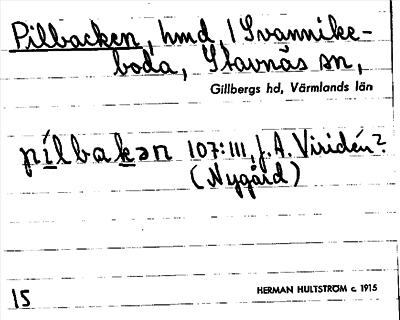 Pilbacken, hmd. / Svannike-
boda, Stavnäs sn,
Gillbergs hd, Värmlands län
pílbakən 107:III, J. A. Viridén?
(Nygård)
15
HERMAN HULTSTRÖM c. 1915